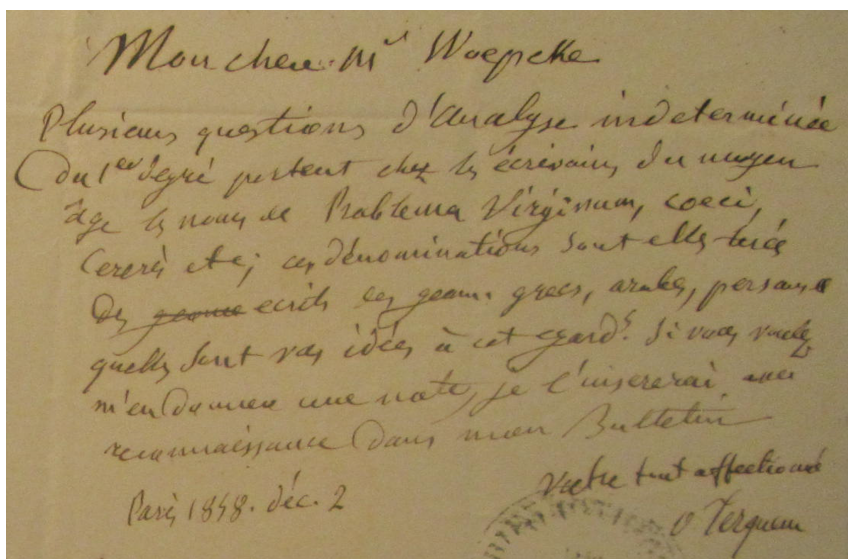 Mon cher Mr Woepcke
Plusieurs questions d'analyse indeterminée
du 1er degré portent chez les écrivains du moyen
âge les noms de Problema Virginum, coeci,
Cereris etc; ces dénominations sont elles tirées
des geome ecrits des geom. grecs, arabes, persans
quelles sont vos idées à cet égard. Si vous voulez
m'en donner une note, je l'insererai avec
reconnaissance dans mon Bulletin
Votre tout affectionné
Paris 1858. déc. 2
O Terquem